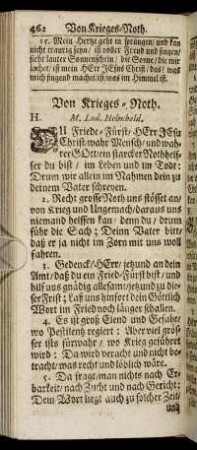 462 Von Krieges-Noth.
15. Mein Hertze geht in sprüngen/ und kan
nicht traurig seyn/ ist voller Freud und singen/
sieht lauter Sonnenschein/ die Sonne/ die mir
lachet/ ist mein HErr JEsus Christ/ das/ was
mich singend machet/ ist was im Himmel ist.
Von Krieges-Noth.
H. M. Lud. Helmbold.
DU Friede-Fürst/ HErr JEsu
Christ/ wahr Mensch/ und wah-
rer GOtt/ ein starcker Nothhelf-
fer du bist/ im Leben und im Todt:
Drum wir allein im Nahmen dein zu
deinem Vater schreyen.
2. Recht grosse Noth uns stösset an/
von Krieg und Ungemach/ daraus uns
niemand helffen kan/ denn du/ Drum
führ die Sach; Deinn Vater bitt/
daß er ja nicht im Zorn mit uns woll
fahren.
3. Gedenck/ HErr/ jetzund an dein
Amt/ daß du ein Fried-Fürst bist/ und
hilf uns gnädig allesamt/ jetzund zu die-
ser Frist; Laß uns hinfort dein Göttlich
Wort im Fried noch länger schallen.
4. Es ist groß Elend und Gefahr/
wo Pestilentz regiert; Aber viel grös-
ser ists fürwahr/ wo Krieg geführet
wird: Da wird veracht und nicht be-
tracht/ was recht und löblich wäre.
5. Da fragt man nichts nach Er-
barkeit/ nach Zucht und nach Gericht:
Dein Wort liegt auch zu solcher Zeit/
und